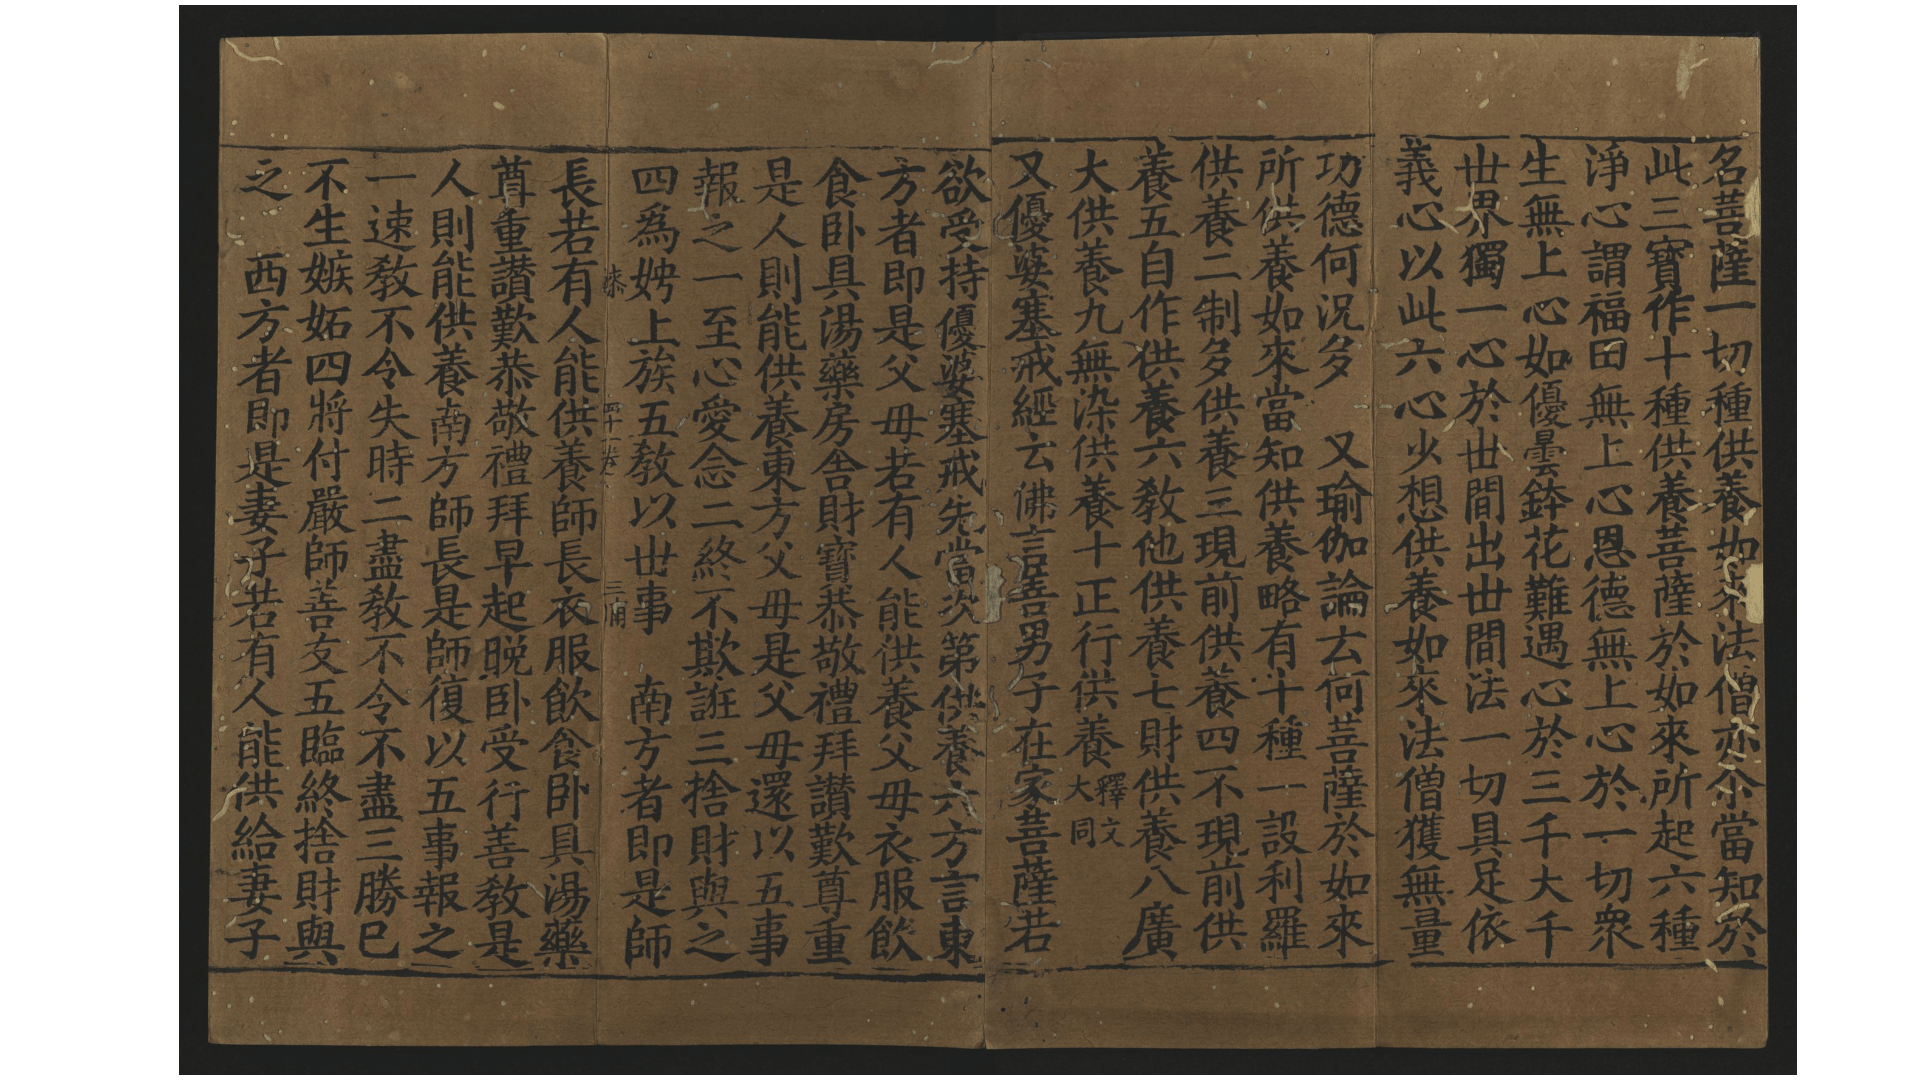 名菩薩一切種供養如來法僧亦尒當知於
此三寶作十種供養菩薩於如來所起六種
淨心謂福田無上心恩德無上心於一切衆
生無上心如優曇鉢花難遇心於三千大千
世界獨一心於世間出世間法一切具足依
義心以此六心少想供養如來法僧獲無量
功德何況多　又瑜伽論云何菩薩於如來
所供養如來當知供養略有十種一設利羅
供養二制多供養三現前供養四不現前供
養五自作供養六教他供養七財供養八廣
大供養九無染供養十正行供養釋文大同
又優婆塞戒經云佛言善男子在家菩薩若
欲受持優婆塞戒先當次第供養六方言東
方者即是父母若有人能供養父母衣服飲
食卧具湯藥房舍財寶恭敬禮拜讃歎尊重
是人則能供養東方父母是父母還以五事
報之一至心愛念二終不欺誑三捨財與之
四爲娉上族五教以世事　南方者即是師
漆　四十一卷　三
長若有人能供養師長衣服飲食卧具湯藥
尊重讃歎恭敬禮拜早起晚卧受行善教是
人則能供養南方師長是師復以五事報之
一速教不令失時二盡教不令不盡三勝已
不生嫉妬四將付嚴師善友五臨終捨財與
之　西方者即是妻子若有人能供給妻子